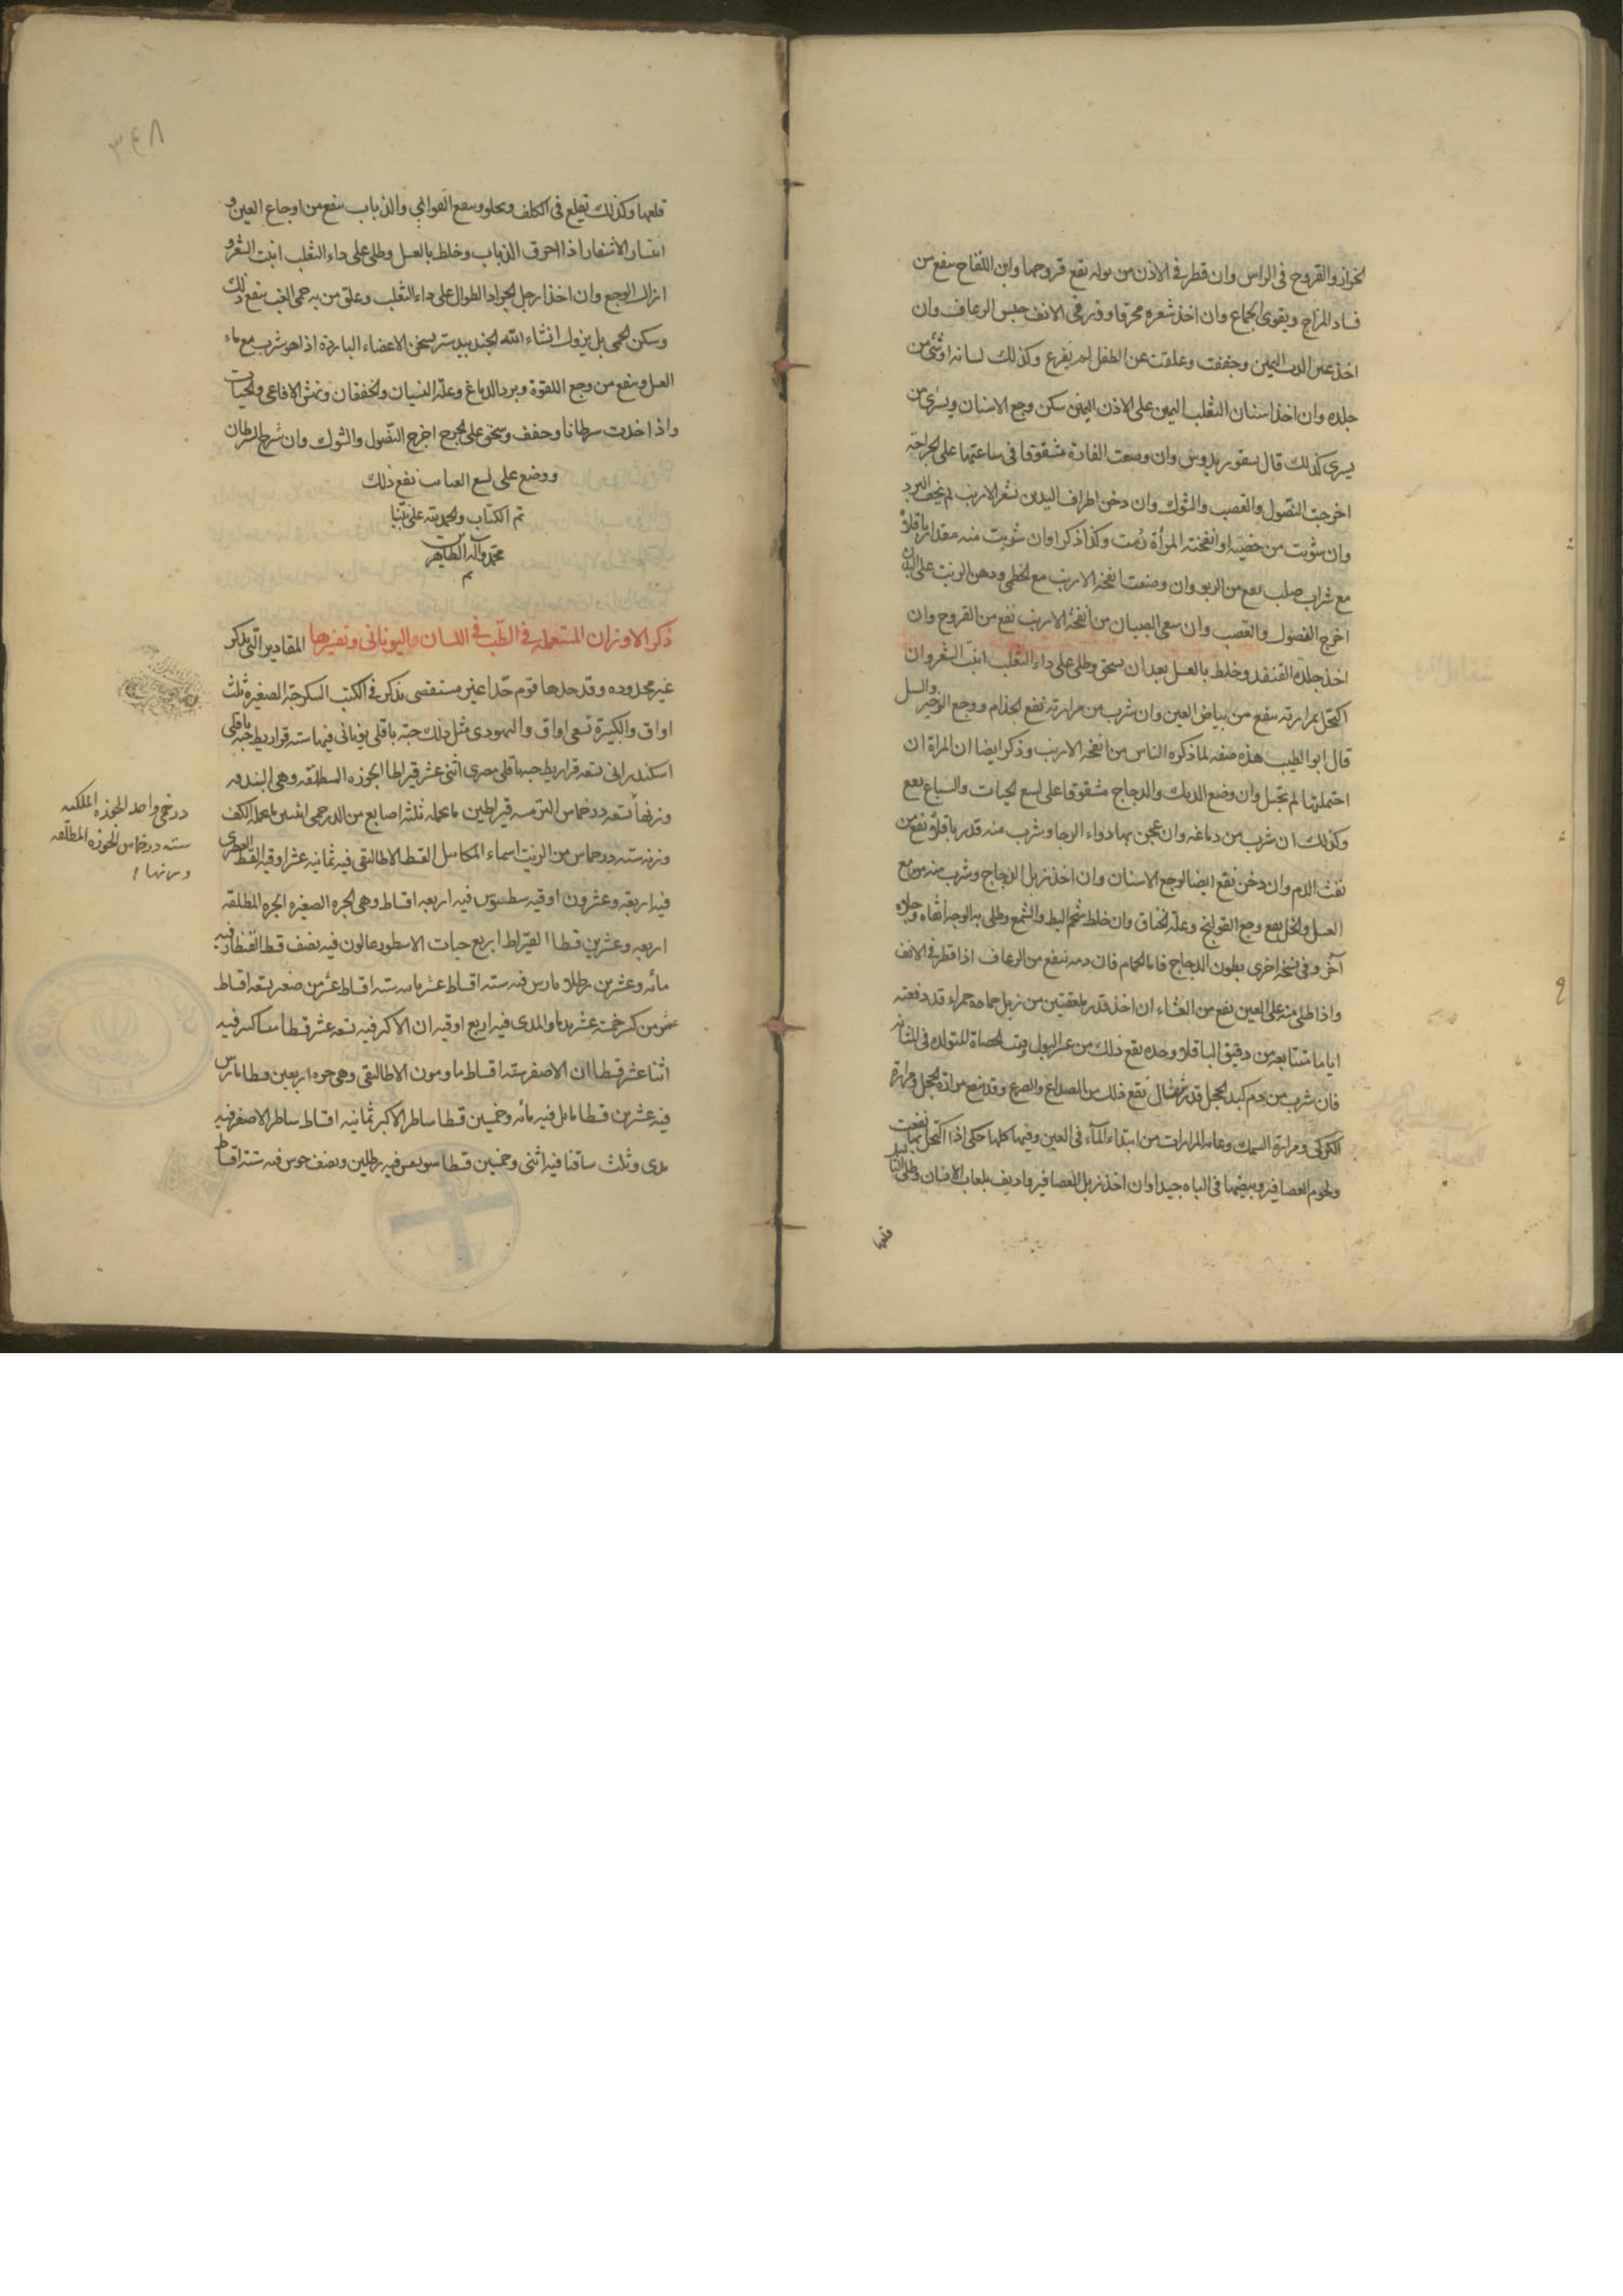 الحزاز والقروح فى الراس وان قطر فى الاذن من بوله نفع قروحها ولبن اللقاح ينفع من
فساد المزاج ويقوى الجماع وان اخذ شعره محرقا وذر فى الانف حبس الرعاف وان
اخذ عين الدب اليمين وجففت وعلقت عن الطفل لم يفزع وكذلك لسانه او شئ من
جلده وان اخذ اسنان الثعلب اليمين على الاذن اليمنى سكن وجع الاسنان ويسرى من
يسرى كذلك قال سقوريدوس وان وضعت الفارة مشقوقا فى ساعتها على الجراحة
اخرجت النصول والقصب والشوك وان دخن اطراف اليدين بشعر الارنب لم يخف البرد
وان شويت من خصيه او انفخته المرأة وكذا ذكر اوان شويت منه مقدار باقلاؤ
مع شراب صلب نفع من الربو وان وضعت انفخه الارنب مع الخطمى ودهن الزيت على البدن
اخرج الفصول والقصب وان سعى الصبيان من انفخة الارنب نفع من القروح وان
اخذ جلدة القنفد وخلط بالعسل بعد ان سحق وطلى على داء الثعلب انبت الشعر وان
اكتحل بمرارته ينفع من بياض العين وان شرب من مرارته نفع الجذام ووجع الزحير والسل
قال ابو الطيب هذه صفه لما ذكره الناس من انفخه الارنب وذكر ايضا ان المراة ان
احتملتها لم تحبل وان وضع الديك والدجاج مشقوقا على لسع الحيات والسباع نفع
وكذلك ان شرب من دماغه وان عجن بها دواء الوجا وشرب منه قدر باقلاؤ نفع من
نفث الدم وان دخن نفع ايضا لوجع الاسنان وان اخذ زبل الدجاج وشرب منه من مع
العسل والخل نفع وجع القولنج وعلة الخناق وان خلط شحم البط والشمع وطلى به الوجه انقاه وجلاه
آخر وفى نسخه اخرى بطون الدجاج فاما الحمام فان دمه ينفع من الرعاف اذا قطر فى الانف
واذا طلى منه على العين نفع من العشاء ان اخذ قدر بلعقتين من زبل حمامه حمراء قد دفعته
اياما متتابعه من دقيق الباقلاؤ وحده نفع ذلك من عسر البول وفت الحصاة المتولده فى المثانه
فان شرب من دم كبد الحجل قدر مثقال نفع ذلك من الصداع والصرع وقد ينفع مرارة الحجل ومرارة
الكركى ومرارة السمك وعامه المرارات من ابتداء الماء فى العين وفيها كلها حكى اذا اكتحل بها نفعت
ولحوم العصافير وبيضها فى الباه جيدا وان اخذ زبل العصافير واديف بلعاب الانسان وطلى الثاليل
قلعها
٣٤٨
قلعها وكذلك تقلع فى الكلف وتحلو وينفع القوابى والذباب ينفع من اوجاع العين و
انتشار الاشفار اذا احرق الذباب وخلط بالعسل وطلى على داء الثعلب انبت الشعر و
ازال الوجع وان اخذ ارجل الجراد الطوال على داء الثعلب وعلق من به حمى الغب ينفع ذلك
وسكن الحمى بل يزول انشاء الله الجندبيدستر يسخن الاعضاء الباردة اذا هو شرب مع ماء
العسل وينفع من وجع اللقوة وبرد الدماغ وعلة النسيان والخفقان ونهش الافاعى والحيات
واذا اخذت سرطانا وجفف وسحق على الجرح اخرج النصول والشوك وان شرح السرطان
ووضع على لسع العقارب نفع ذلك
تم الكتاب والحمد لله على نبينا
محمد وآله الطاهرين
تم
ذكر الاوزان المستعمله فى الطب فى اللسان واليونانى وتفسيرها المقادير التى يذكر
غير محدوده وقد حدها قوم حدا غير مستقصى يذكر فى الكتب السكرجة الصغيرة ثلث
اواق والكبيرة تسعى اواق واليهودى مثل ذلك حبة باقلى يونانى فيها سته قراريط حبه باقلى
اسكندرانى تسعه قراريط حبه باقلى مصرى اثنى عشر قيراطا الجوزه المطلقه وهى البندقه
وزنها تسعه درخماس الترمسه قيراطين ما يحمله ثلثه اصابع من الدرخمى اثنين ما يحمله الكف
وزنه سته درخماس من الزيت اسماء المكاييل القسط الاطاليقى فيه ثمانيه عشر اوقيه القسط المصرى
فيه اربعه وعشرون اوقيه سطسوس فيه اربعه اقساط وهى الجره الصغيره الجره المطلقه
اربعه وعشرين قسطا القيراط اربع حبات الاسطود عالون فيه نصف قسط القنطار فيه
مائه وعشرين رطلا مارس فيه سته اقساط عشر مامه سته اقساط عشر من صغير تسعه اقساط
عشر من كبير خمسة عشر والمدى فيه اربع اوقيه ان الاكبر فيه تسعه عشر قسطا فيه
اثنا عشر قسطا ان الاصغر سته اقساط مامون الاطاليقى وهى جره اربعين قسطا مارس
فيه عشرين قسطا مابل فيه مائه وخمسين قسطا ساطر الاكبر ثمانيه اقساط ساطر الاصغر فيه
مدى وثلث ساقنا فيه اثنى وخمسين قسطا فيه رطلين ونصف حوس فيه سته اقساط
درخمى واحد الجوزه الملكيه
سته درخماس الجوزه المطلقه
وزنها